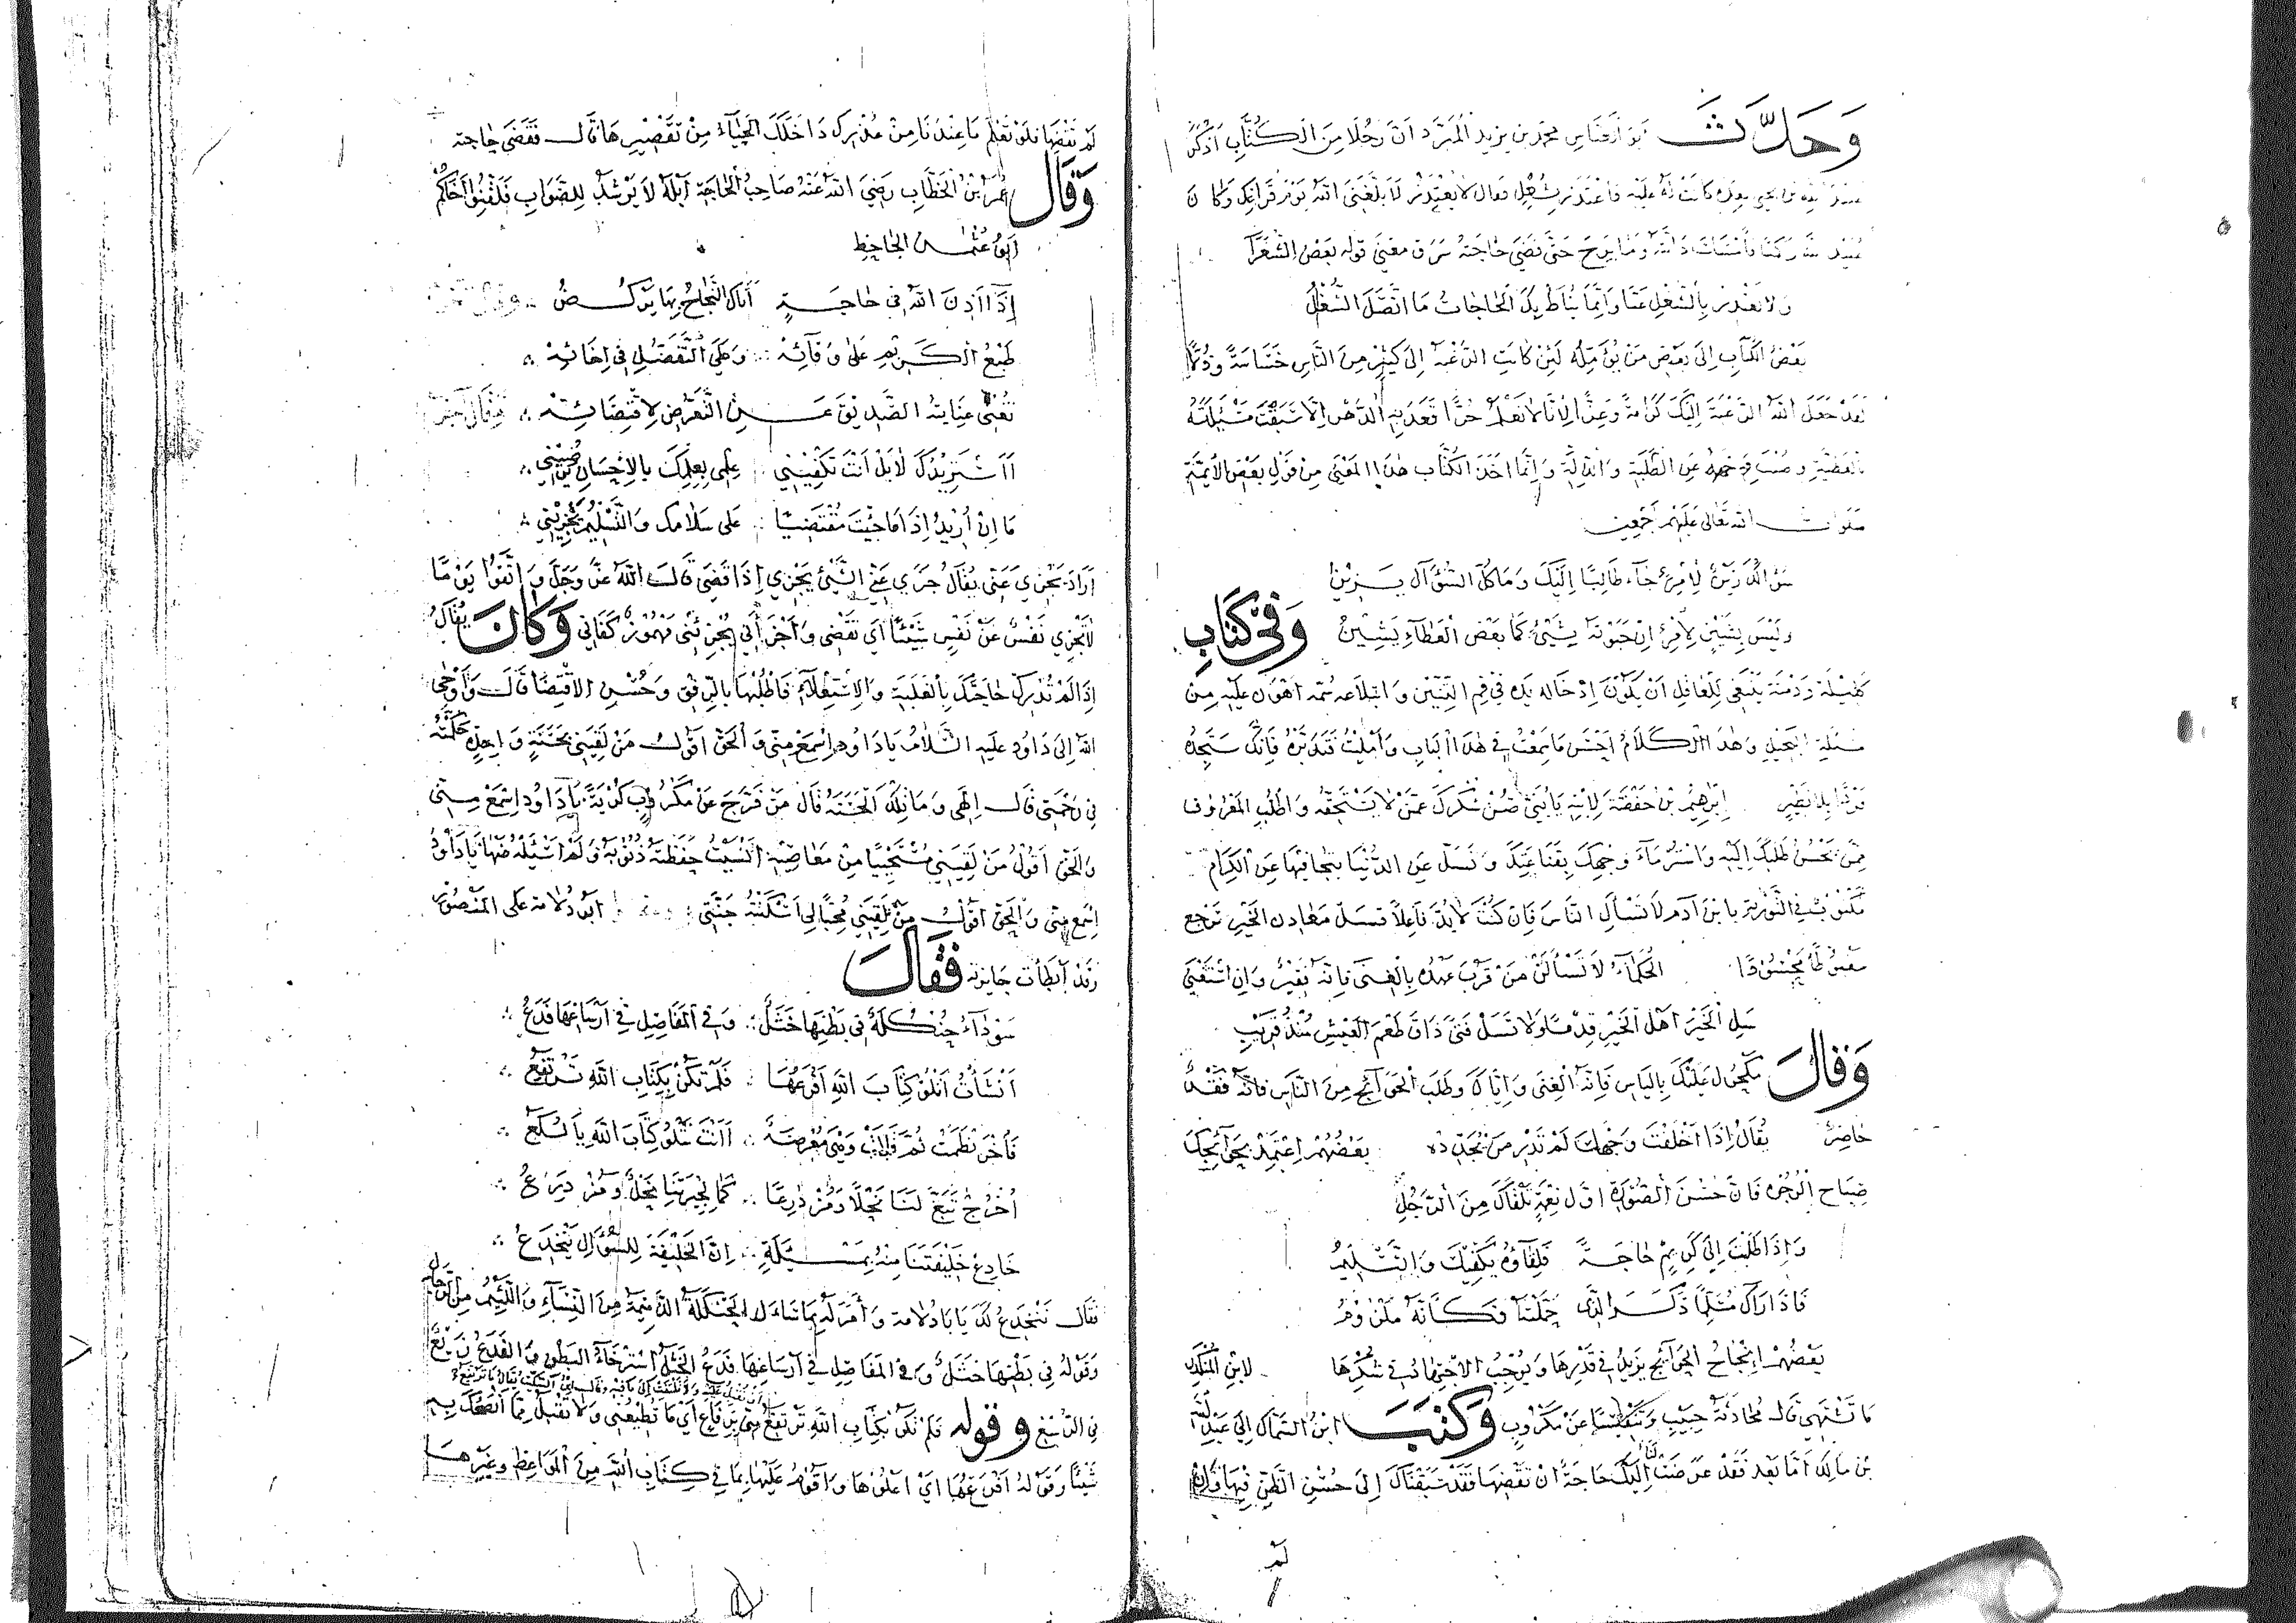 وَحَدَّثَ أبو العباس محمد بن يزيد المُبَرَّد انّ رجُلا من الكُتّاب اذكر
فاعتذر بشغل فقال لا يعتذر لا بلغني الله يوم فراغك وكان
وما برح حتى قضى حاجته سرق معنى قوله بعض الشعرآ
ولا تعتذر بالشغل عنا وانّما تُناط بك الحاجات ما اتصل الشغلُ
بعضُ الكتاب الى بعض من يؤمّله لئن كانت الرّغبة الى كثير من الناس خساسةً وذلًّا
لقد جعل الله الرّغبة اليك كرامةً وعزًّا لانّا لا نعلمُ حُرًّا قعد به الدّهر الّا سبقت مسئلتهُ
بالعطيّة وصنت وجهه عن الطّلبة والذلّة وانّما اخذ الكتّاب هذا المعنى من قول بعض الايمّة
صلوات الله تعالى عليهم اجمعين
سؤالك زينٌ لامرئ جآء طالبًا اليك وما كلّ السؤآل يزينُ
وليس بشينٍ لامرئ ان حبوتهُ بشيئ كما بعض العطآء يشينُ وَفي كتَابِ
كليلة ودمنة ينبغى للعاقل ان يكون ادخاله يده في فم التّنّين وابتلاعه سمّه اهون عليه من
مسئلة البخيل وهذا الكلامُ احسن ما سمعتُ في هذا الباب وامليتُ فتدبّرهُ فانك ستجدُه
فردًا بلا نظير ابرهيم بن حفصة لابنه يا بنيّ صُن شكرك عمّن لا يستحقّه واطلب المعروف
ممّن يحسُن طلبك اليه واستر مآء وجهك بقناعتك وتسلّ عن الدُّنيا بتجافيها عن الكرام
مكتوبٌ في التّورية يا بن آدم لا تسأل الناس فان كنتَ لا بُدّ فاعلًا فسل معادن الخير ترجع
مغبوطًا محسودًا الحكمآء لا تسألنّ من قرب عهدُه بالغنى فانه فقيرٌ وان استغنى
سل الخير اهل الخير قدمًا ولا تسل فتىً ذاق طعم العيش منذُ قريب
وَقَالَ مكحول عليك بالياس فانّه الغنى وايّاك وطلب الحوآئج من الناس فانّه فقرٌ
حاضرٌ يقالُ اذا اخلقت وجهك لم تدر من يُجدّده بعضُهم اعتمد بحوآئجك
صباح الوُجُوه فانّ حسن الصّورة اوّل نعمةٍ تلقاك من الرّجُلِ
واذا طلبت الى كريم حاجةً فلقاؤه يكفيك والتّسليمُ
فاذا رآك مُسلّمًا ذكر الّذى حمّلتهُ فكأنّهُ ملزومُ
بعضُهم انجاح الحوآئج يزيدُ في قدرها ويُوجبُ الاجتهاد في شُكرها لابن المنكدر
ما تشتهي قال مُحادثة حبيبٍ وتنفيسًا عن مكروبٍ وَكتَبَ ابنُ السّماك الى عبد الله
بن مالك امّا بعد فقد عرضت لنا اليك حاجةٌ ان تقضها فقد سبقناك الى حُسن الظّنّ فيها وان
لم
لم تقضها فلو تعلم ما عندنا من عُذرك داخلك الحيآء من تقصيرها قال فقضى حاجته
وَقَال عمر بنُ الخطّاب رضي الله عنه صاحبُ الحاجة ابله لا يرشدُ للصّواب فلقّنوا اخاكم
ابو عثمان الجاحظ
اذا اذن الله في حاجةٍ أتاك النّجاحُ بها يركُضُ
طبعُ الكريم على وفآئه وعلى التّفضّل في اخائه
تُغنى عنايتهُ الصّديق عن التّعرّض لاقتضائه
أأستزيدُك لا بل انت تكفيني علمي بفعلك بالاحسان يُرضيني
ما ان أُريدُ اذا ما جئت مقتضيًا على سلامك والتّسليمُ يجزيني
اراد يجزي عنّى يُقالُ جزي عني الشّيئ يجزي اذا قضى قال الله عزّ وجلّ واتّقوا يومًا
لا تجزي نفسٌ عن نفسٍ شيئًا اي تقضى وأجزأني يُجزئنى مهموز كفاني وَكَانَ يقالُ
اذا لم تُدرك حاجتك بالغلبة والاستعلآء فاطلُبها بالرّفق وحُسن الاقتضا قال وأوحى
الله الى داود عليه السّلامُ يا داود اسمع منّى والحقّ اقول من لقيني بحسنةٍ واحدةٍ حكّمته
في رحمتى قال الهى وما تلك الحسنة قال من فرّج عن مكروبٍ كربةً يا داود اسمع منّى
والحقّ اقولُ من لقيني مستحييًا من معاصيّه انسيتُ حفظتهُ ذنوبهُ ولم اسئلهُ عنها يا داوُدُ
اسمع منّى والحقّ اقول من لقيني محبًّا لى اسكنتهُ جنّتي ابو دُلامة على المنصور
وقد ابطأت جايزته فَقَالَ
سودآءُ حنكلةٌ في بطنها خثلٌ وفي المفاصل في ارساغها فدعُ
انشأتُ اتلو كتاب الله اقرعُها فلم تكن بكتاب الله ترتفعُ
فأخرنطمت ثم قالت وهى مُعرضةٌ أأنت تتلو كتاب الله يا لُكعُ
اخرُج تبغّ لنا نخلًا ومُزدرعًا كما لجيرتنا نخلٌ ومُزدرعُ
خادع خليفتنا منهُ بمسئلةٍ انّ الخليفة للسّؤال ينخدعُ
فقال ننخدعُ لك يا با دُلامة وأمر لهُ بما سأل الحنكلةُ الذّميمةُ من النساء واللئيمُ من الرّجال
وقولهُ في بطنها خثلٌ وفي المفاصل في ارساغها فدعُ الخثلُ استرخآء البطن والفدعُ زيغٌ
في الرّسغ وقوله فلم تكن بكتاب الله ترتفعُ اي ما تُطيعُنى ولا تقبلُ ممّا انصحُك به
شيئًا وقوله اقرعُها اي اعلُوها واقولُ عليها بما في كتاب الله من المواعظ وغيرها